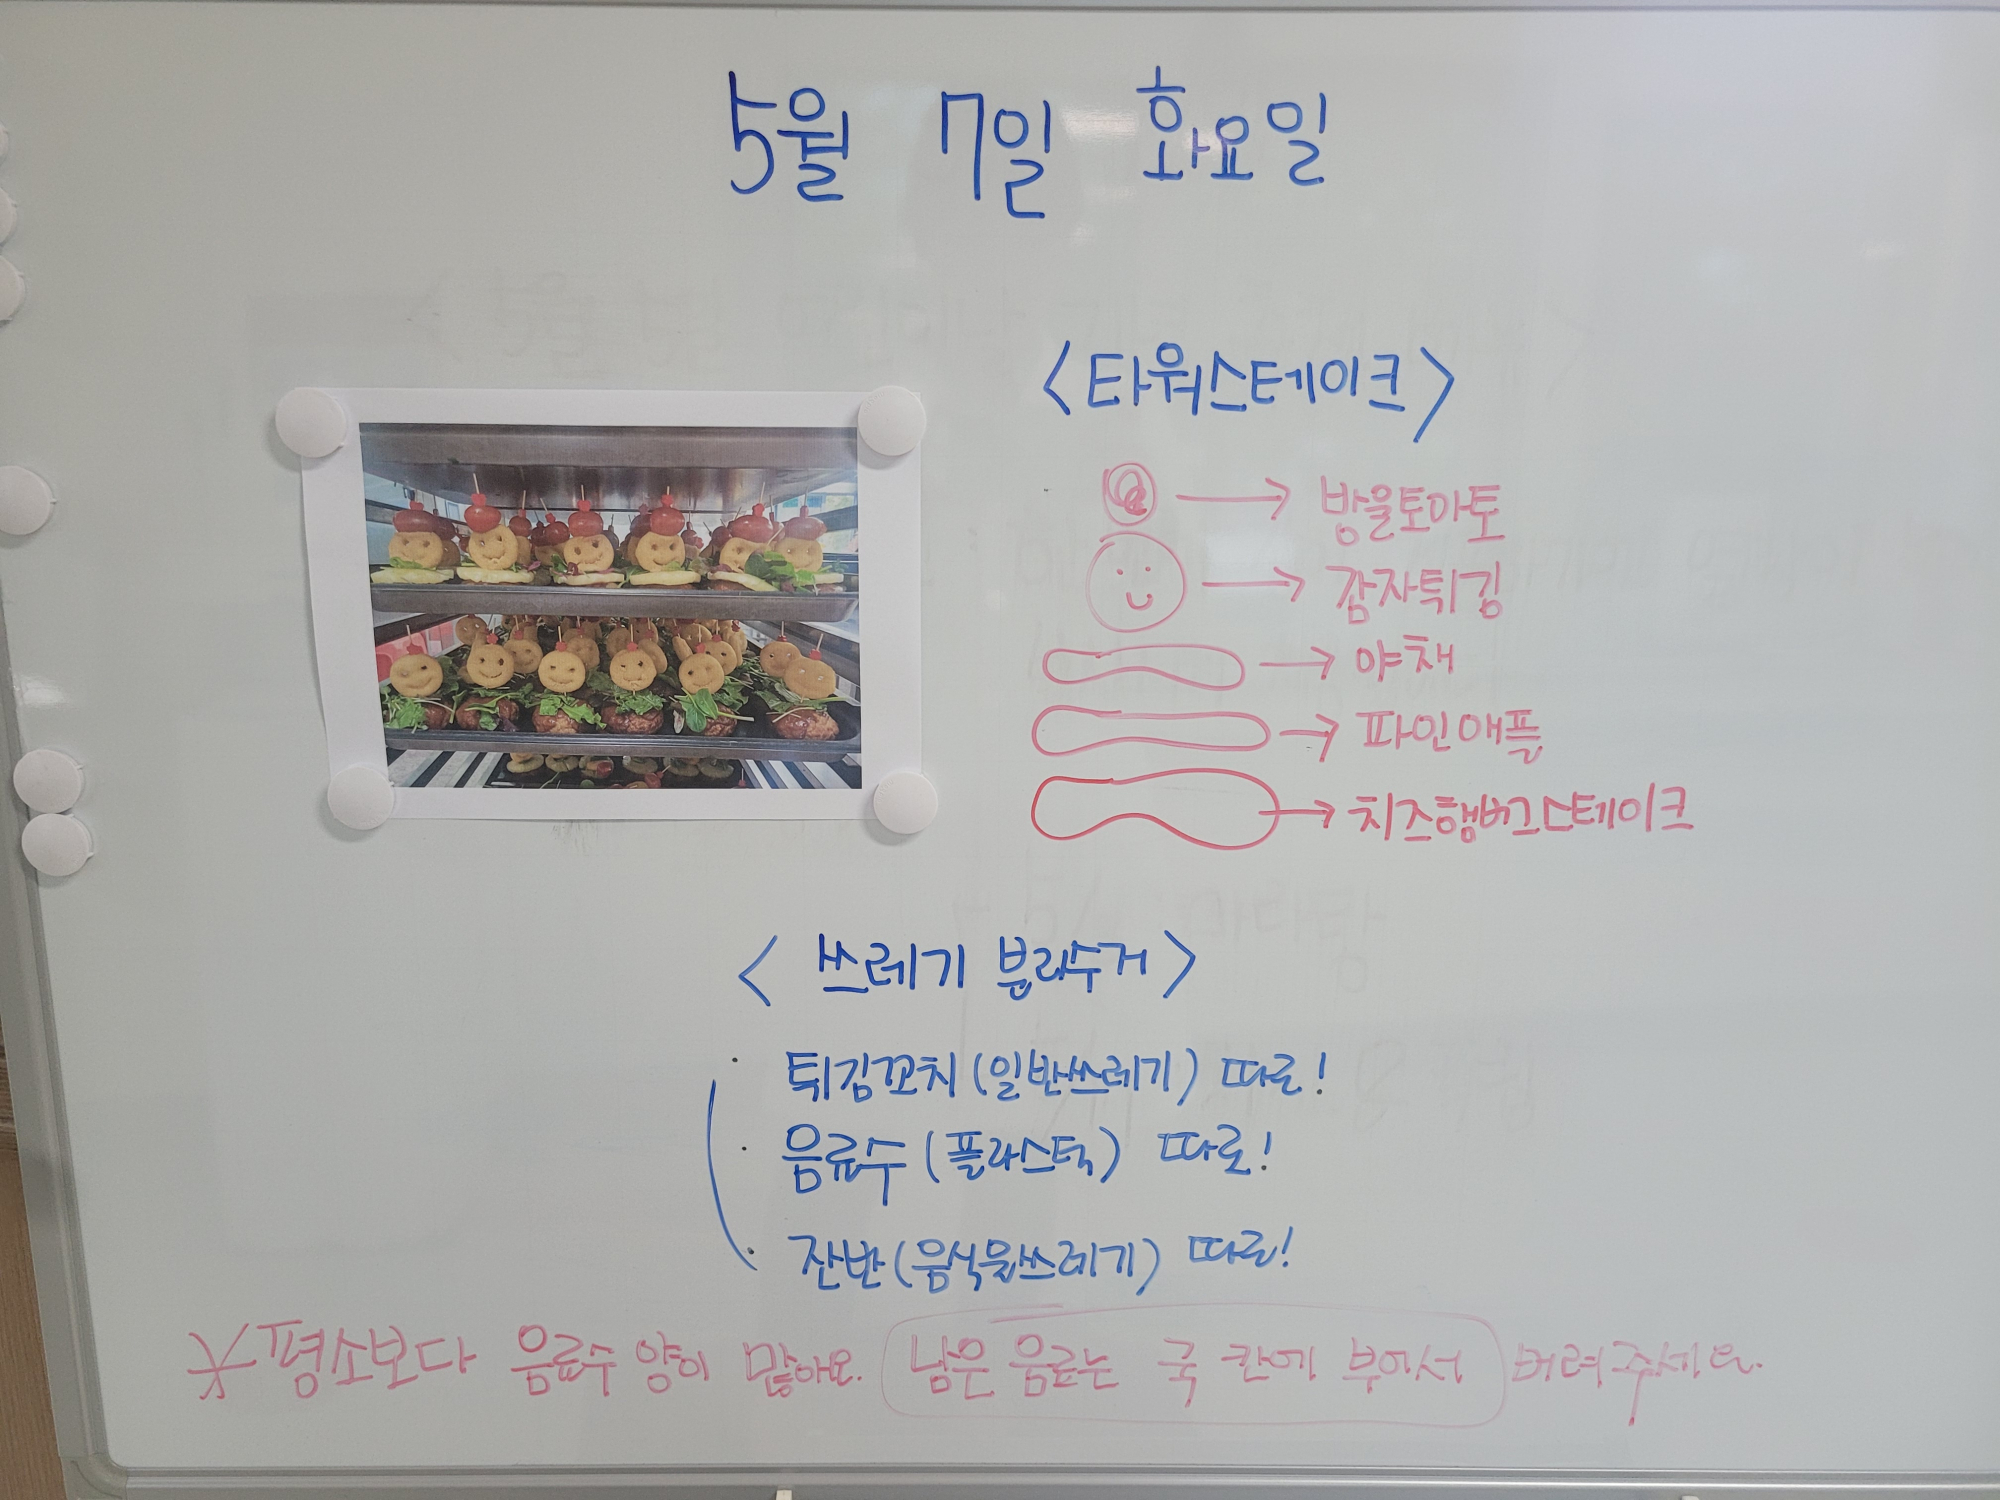 5월 7일 화요일
<타워스테이크>
→ 방울토마토
→ 감자튀김
→ 야채
→ 파인애플
→ 치즈햄버그스테이크
< 쓰레기 분리수거 >
· 튀김꼬치 (일반쓰레기) 따로!
· 음료수 (플라스틱) 따로!
· 잔반 (음식물쓰레기) 따로!
※평소보다 음료수 양이 많아요. 남은 음료는 국 칸에 부어서 버려주세요.